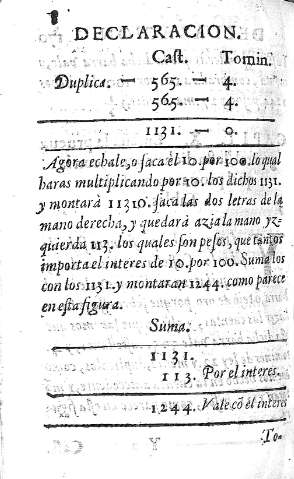 DECLARACION.
Cast. Tomin.
Duplica. — 565. — 4.
565. — 4.
1131. — 0.
Agora echale, o saca el 10. por 100. lo qual
haras multiplicando por 10. los dichos 1131.
y montarà 11310. saca las dos letras de la
mano derecha, y quedarà azia la mano yz-
quierda 113. los quales son pesos, que tantos
importa el interes de 10. por 100. Suma los
con los 1131. y montaran 1244. como parece
en esta figura.
Suma.
1131.
113. Por el interes.
1244. Vale cõ el interes
To-